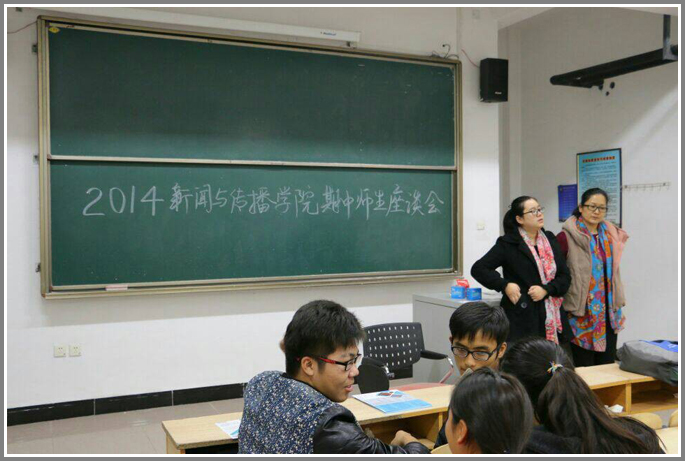 2014新闻与传播学院期中师生座谈会